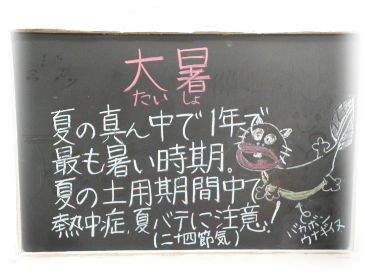 大暑
たい しょ
夏の真ん中で1年で
最も暑い時期。
夏の土用期間中で
熱中症、夏バテに注意!
(二十四節気)
と
バカボン
ウナギイヌ